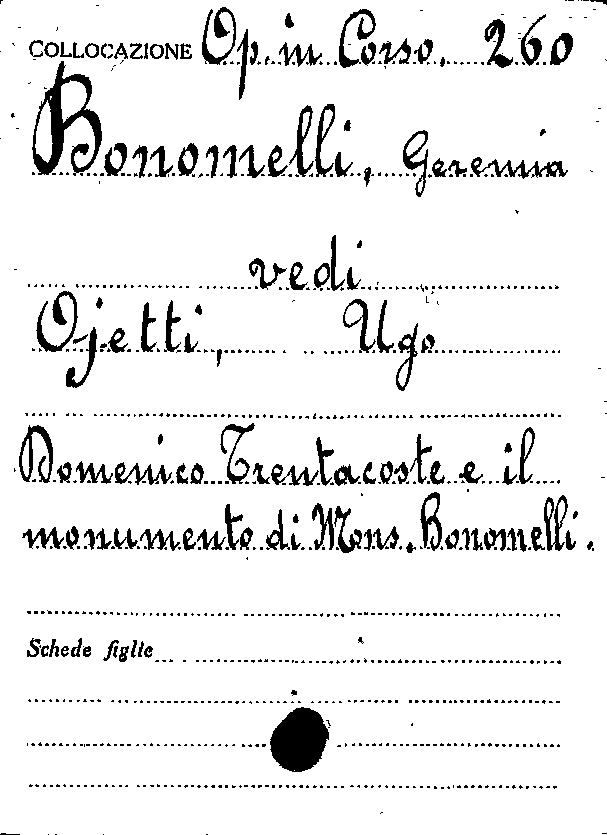 COLLOCAZIONE Op. in Corso. 260
Bonomelli, Geremia
vedi
Ojetti, Ugo
Domenico Trentacoste e il
monumento di Mons. Bonomelli.
Schede figlie